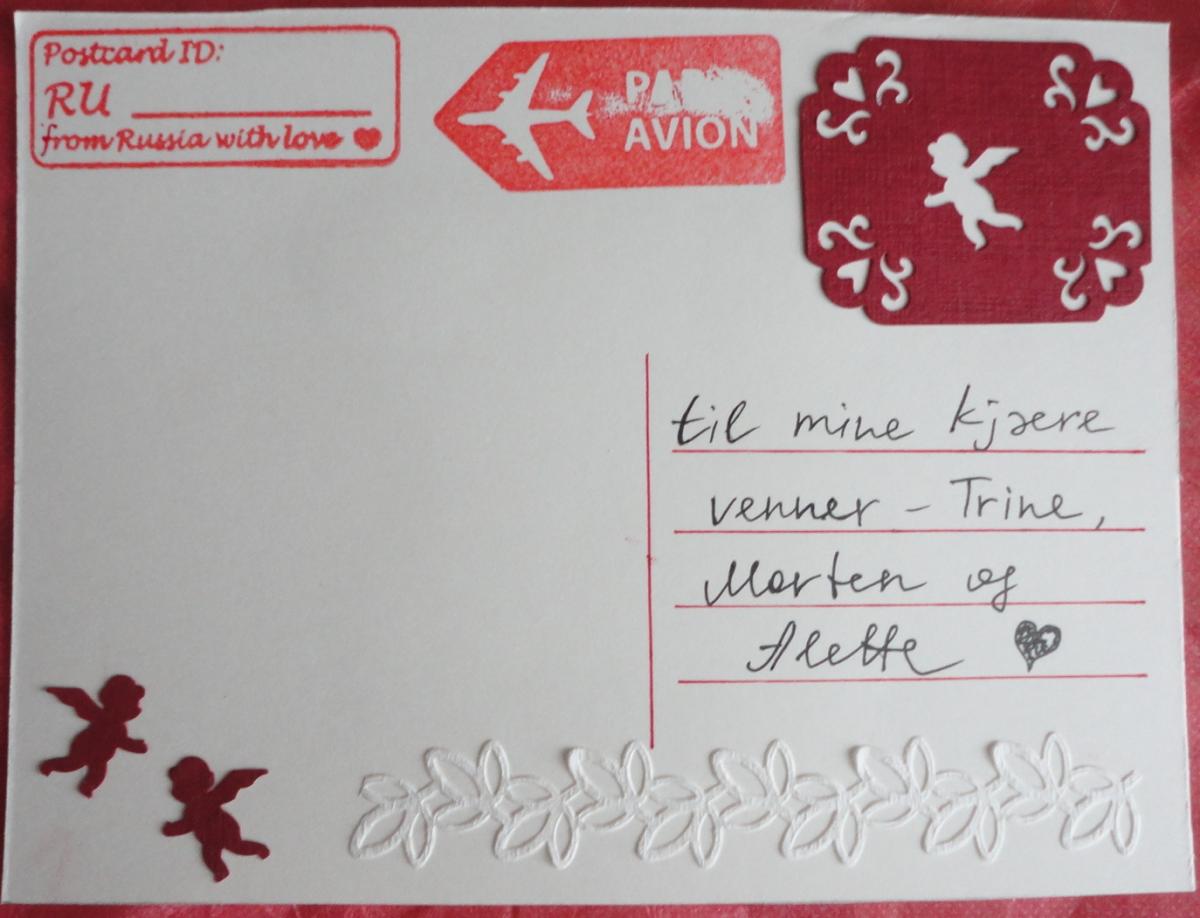 Postcard ID:
RU
from Russia with love
PAR
AVION
til mine kjære
venner - Trine,
Morten og
Alette